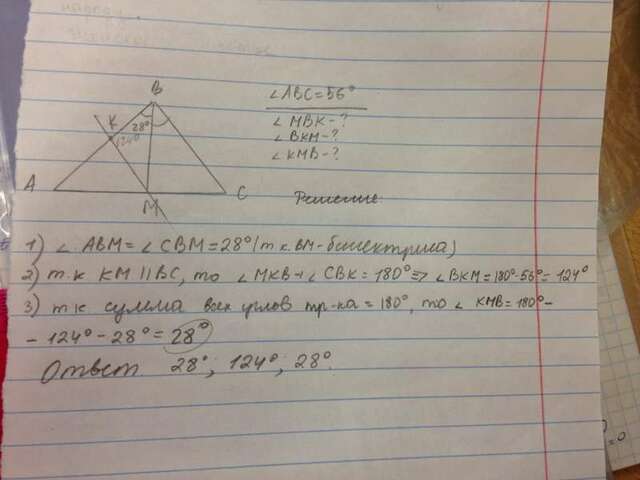 B
∠ABC=56°
K
28°
∠MBK-?
124°
∠BKM-?
∠KMB-?
A
C
M
Решение
1) ∠ ABM=∠CBM=28° (т.к. BM-биссектриса)
2) т.к KM || BC, то ∠MKB+∠CBK=180° => ∠BKM=180°-56°=124°
3) т к сумма всех углов тр-ка=180°, то ∠ KMB=180°-
-124°-28°=28°
Ответ 28°; 124°; 28°.